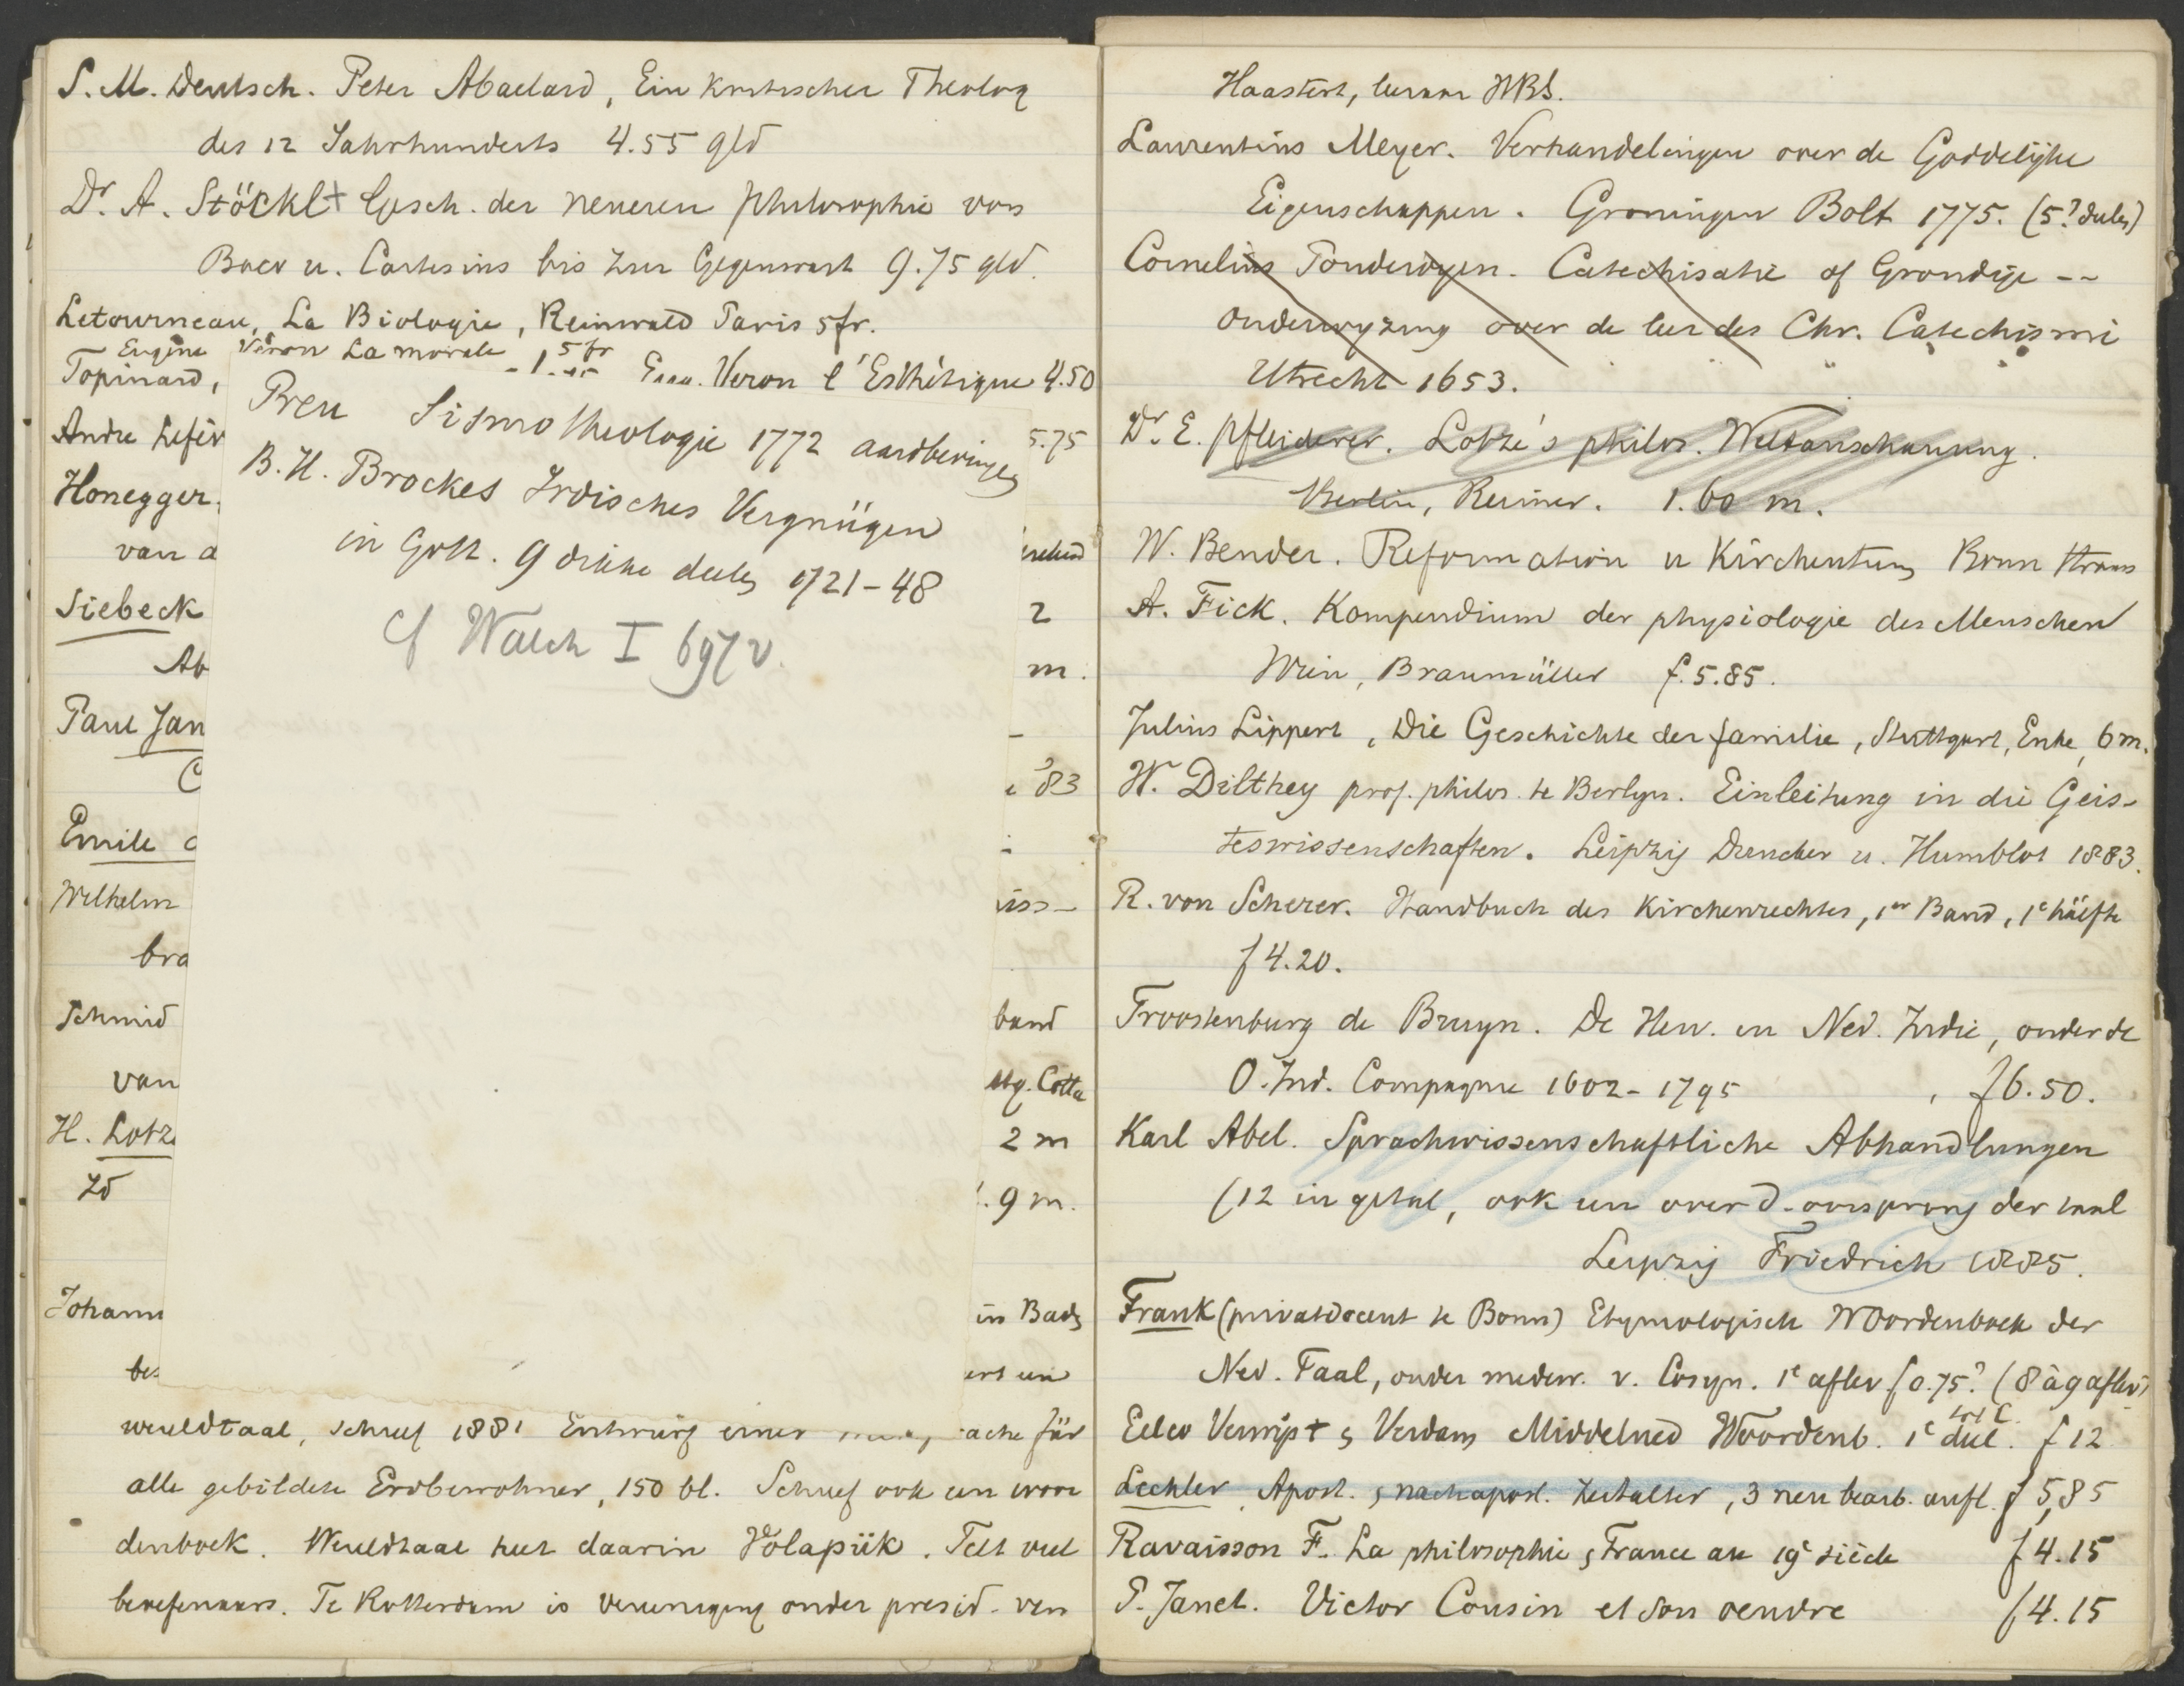 S. M. Deutsch. Peter Abaelard, Ein kritischer Theolog
des 12 Jahrhunderts 4.55 gld
Dr. A. Stöckl Gesch. der neueren philosophie von
Baco u. Cartesius bis zur Gegenwart 9.75 gld.
Letourneau, La Biologie, Reinwald Paris 5fr.
Eugène Véron La morale 5 fr
Topinard, Veron l'Esthétique 4.50
Andre Lefèv 5.75
Honegger.
van a
Siebeck 2
Ab m.
Paul Jan -
C '83
Emile
Wilhelm iss-
bra
Schmid band
van ttg. Cotta
H. Lotz 2 m
Id 9 m.
Johann in Bad
bes
wereldtaal, schreef 1881 Entwurf einer ache für
alle gebildete Erdbewohner, 150 bl. Schreef ook een woor
denboek. Wereldtaal heet daarin Volapük. Telt veel
beoefenaars. Te Rotterdam is vereeniging onder presid. van
Preu Sismotheologie 1772 aardbevingen
B. H. Brockes Irdisches Vergnügen
in Gott. 9 dikke deelen 1721-48
cf Walch I 697 v.
Haastert, leeraar HBS.
Laurentius Meyer. Verhandelingen over de Goddelijke
Eigenschappen. Groningen Bolt 1775. (5? deelen)
Cornelius Poudroyen. Catechisatie of Grondige --
onderwyzing over de leer des Chr. Catechismi
Utrecht 1653.
Dr. E. Pfleiderer. Lotze's philos. Weltanschauung.
Berlin, Reimer. 1.60 m.
W. Bender. Reformation u Kirchentum Bonn Strauss
A. Fick. Kompendium der physiologie des Menschen
Wien, Braumüller f. 5.85.
Julius Lippert, Die Geschichte der familie, Stuttgart, Enke, 6 m.
W. Dilthey prof. philos. te Berlyn. Einleitung in die Geis-
teswissenschaften. Leipzig Duncker u. Humblot 1883.
R. von Scherer. Handbuch des Kirchenrechtes, 1er Band, 1e hälfte
f 4.20.
Troostenburg de Bruyn. De Herv. in Ned. Indie, onder de
O. Ind. Compagnie 1602-1795, f 6.50.
Karl Abel. Sprachwissenschaftliche Abhandlungen
(12 in getal, ook een over d. oorsprong der taal
Leipzig Friedrich 1885.
Frank (privatdocent te Bonn) Etymologisch Woordenboek der
Ned. Taal, onder medew. v. Cosyn. 1e aflev f 0.75? (8 à 9 aflev)
tot C.
Eelco Verwijs + Verdam Middelned Woordenb. 1e deel. f 12
Lechler Apost. nachapost. Zeitalter, 3 neu bearb. aufl. f 5,85
Ravaisson F. La philosophie France au 19e siècle f 4.15
P. Janet. Victor Cousin et son oeuvre f 4.15